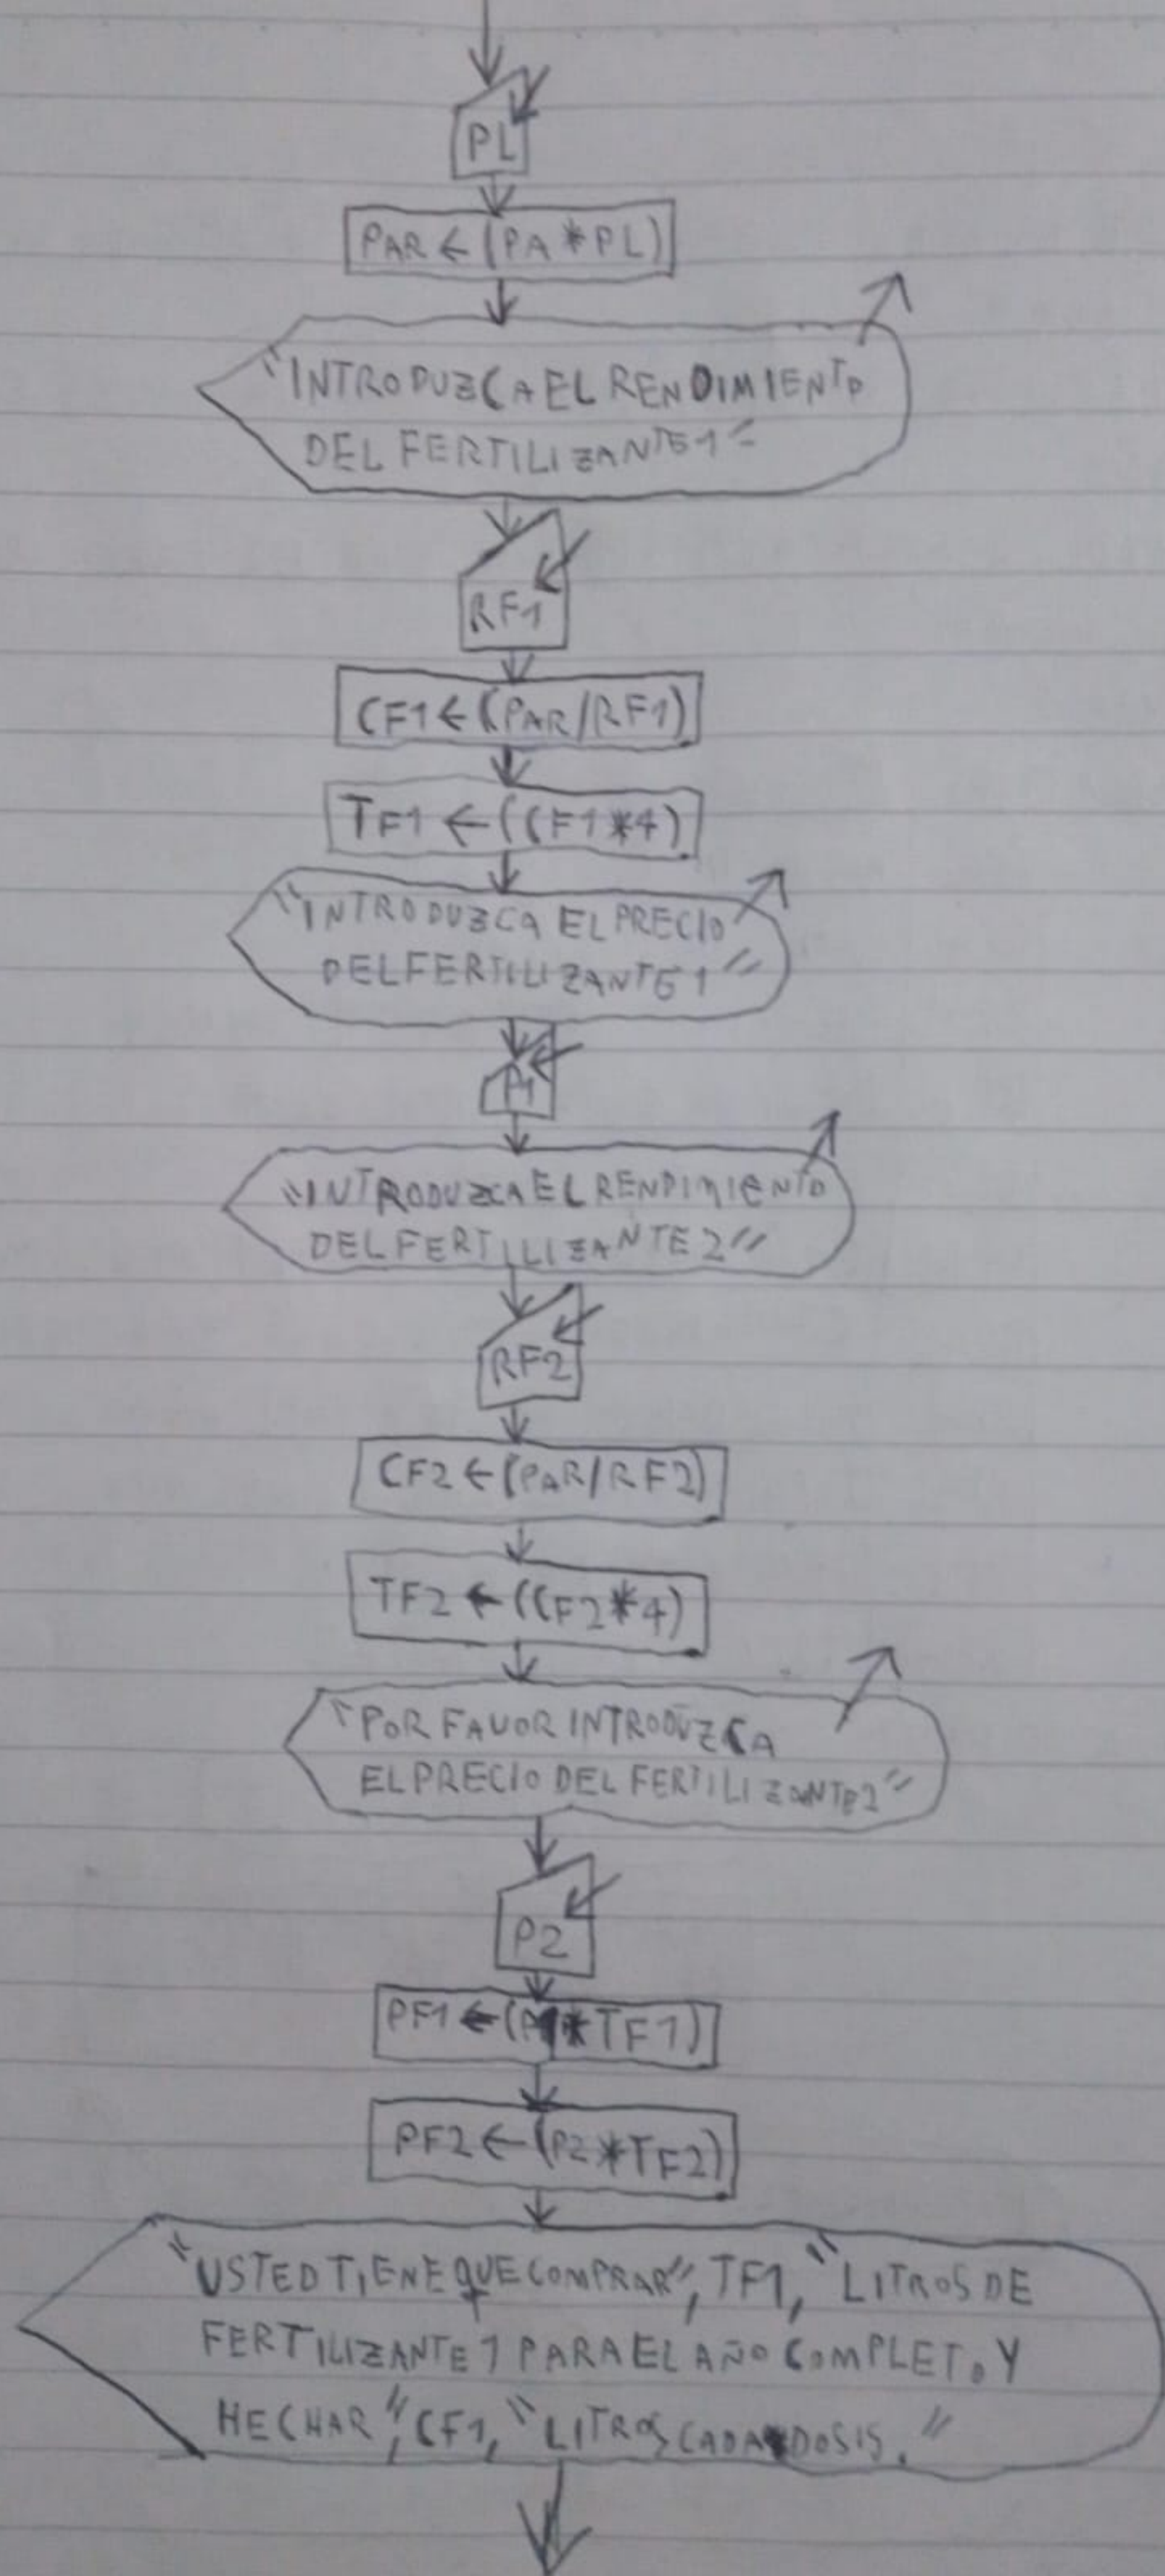 PL
PAR ← (PA * PL)
"INTRODUZCA EL RENDIMIENTO
DEL FERTILIZANTE 1"
RF1
CF1 ← (PAR / RF1)
TF1 ← (CF1 * 4)
"INTRODUZCA EL PRECIO
DEL FERTILIZANTE 1"
P1
"INTRODUZCA EL RENDIMIENTO
DEL FERTILIZANTE 2"
RF2
CF2 ← (PAR / RF2)
TF2 ← (CF2 * 4)
"POR FAVOR INTRODUZCA
EL PRECIO DEL FERTILIZANTE 2"
P2
PF1 ← (P1 * TF1)
PF2 ← (P2 * TF2)
"USTED TIENE QUE COMPRAR", TF1, "LITROS DE
FERTILIZANTE 1 PARA EL AÑO COMPLETO Y
HECHAR", CF1, "LITROS CADA DOSIS."